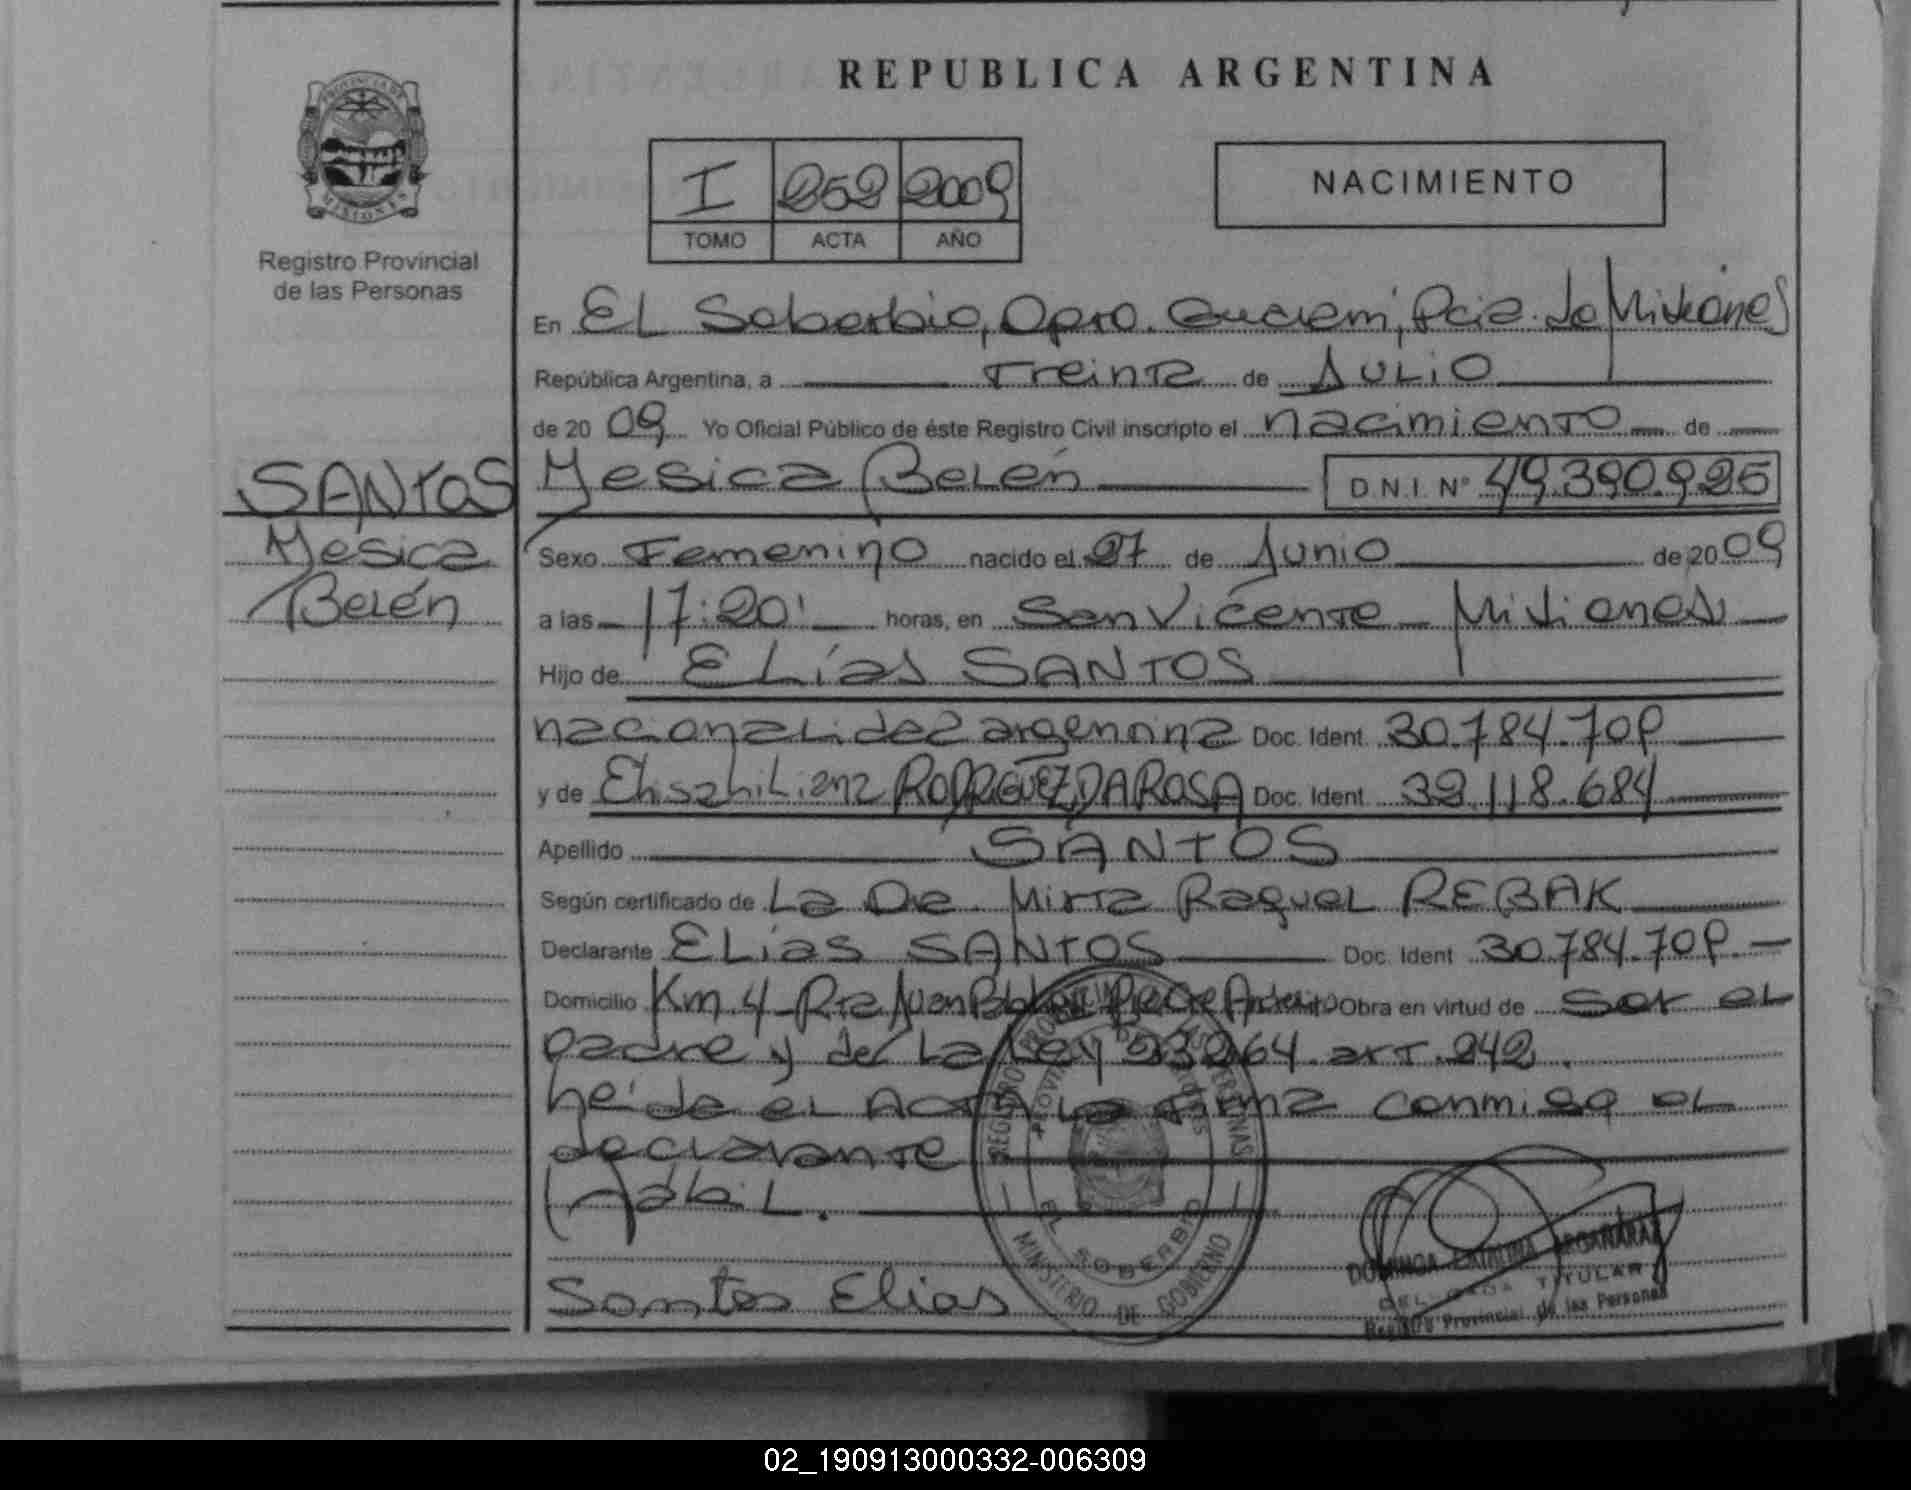 REPUBLICA ARGENTINA
PROVINCIA DE
MISIONES
Registro Provincial
de las Personas
I 252 2009
TOMO ACTA AÑO
NACIMIENTO
En El Soberbio, Dpto. Guaraní, Pcia. de Misiones
República Argentina, a Treinta de Julio
de 2009 Yo Oficial Público de éste Registro Civil inscripto el nacimiento de
SANTOS
Yesica
Belén
Yesica Belén D.N.I. Nº 49.390.925
Sexo Femenino nacido el 27 de Junio de 2009
a las 17:20' horas, en San Vicente Misiones
Hijo de Elías SANTOS
nacionalidad argentina Doc. Ident. 30.784.708
y de RODRIGUEZ DA ROSA Doc. Ident. 39.118.684
Apellido SANTOS
Según certificado de La Dra. Mirta Raquel REBAK
Declarante Elias SANTOS Doc. Ident 30.784.708.
Domicilio Km. 4 Juan Obra en virtud de ser el
padre y de la Ley 23264 art. 242.
leída el ACTA la firma conmigo el
declarante
Hábil.
Santos Elias
REGISTRO PROVINCIAL DE LAS PERSONAS
EL SOBERBIO
MINISTERIO DE GOBIERNO
DOMINGA CATALINA ARGAÑARAZ
DELEGADA TITULAR
Registro Provincial de las Personas
02_190913000332-006309